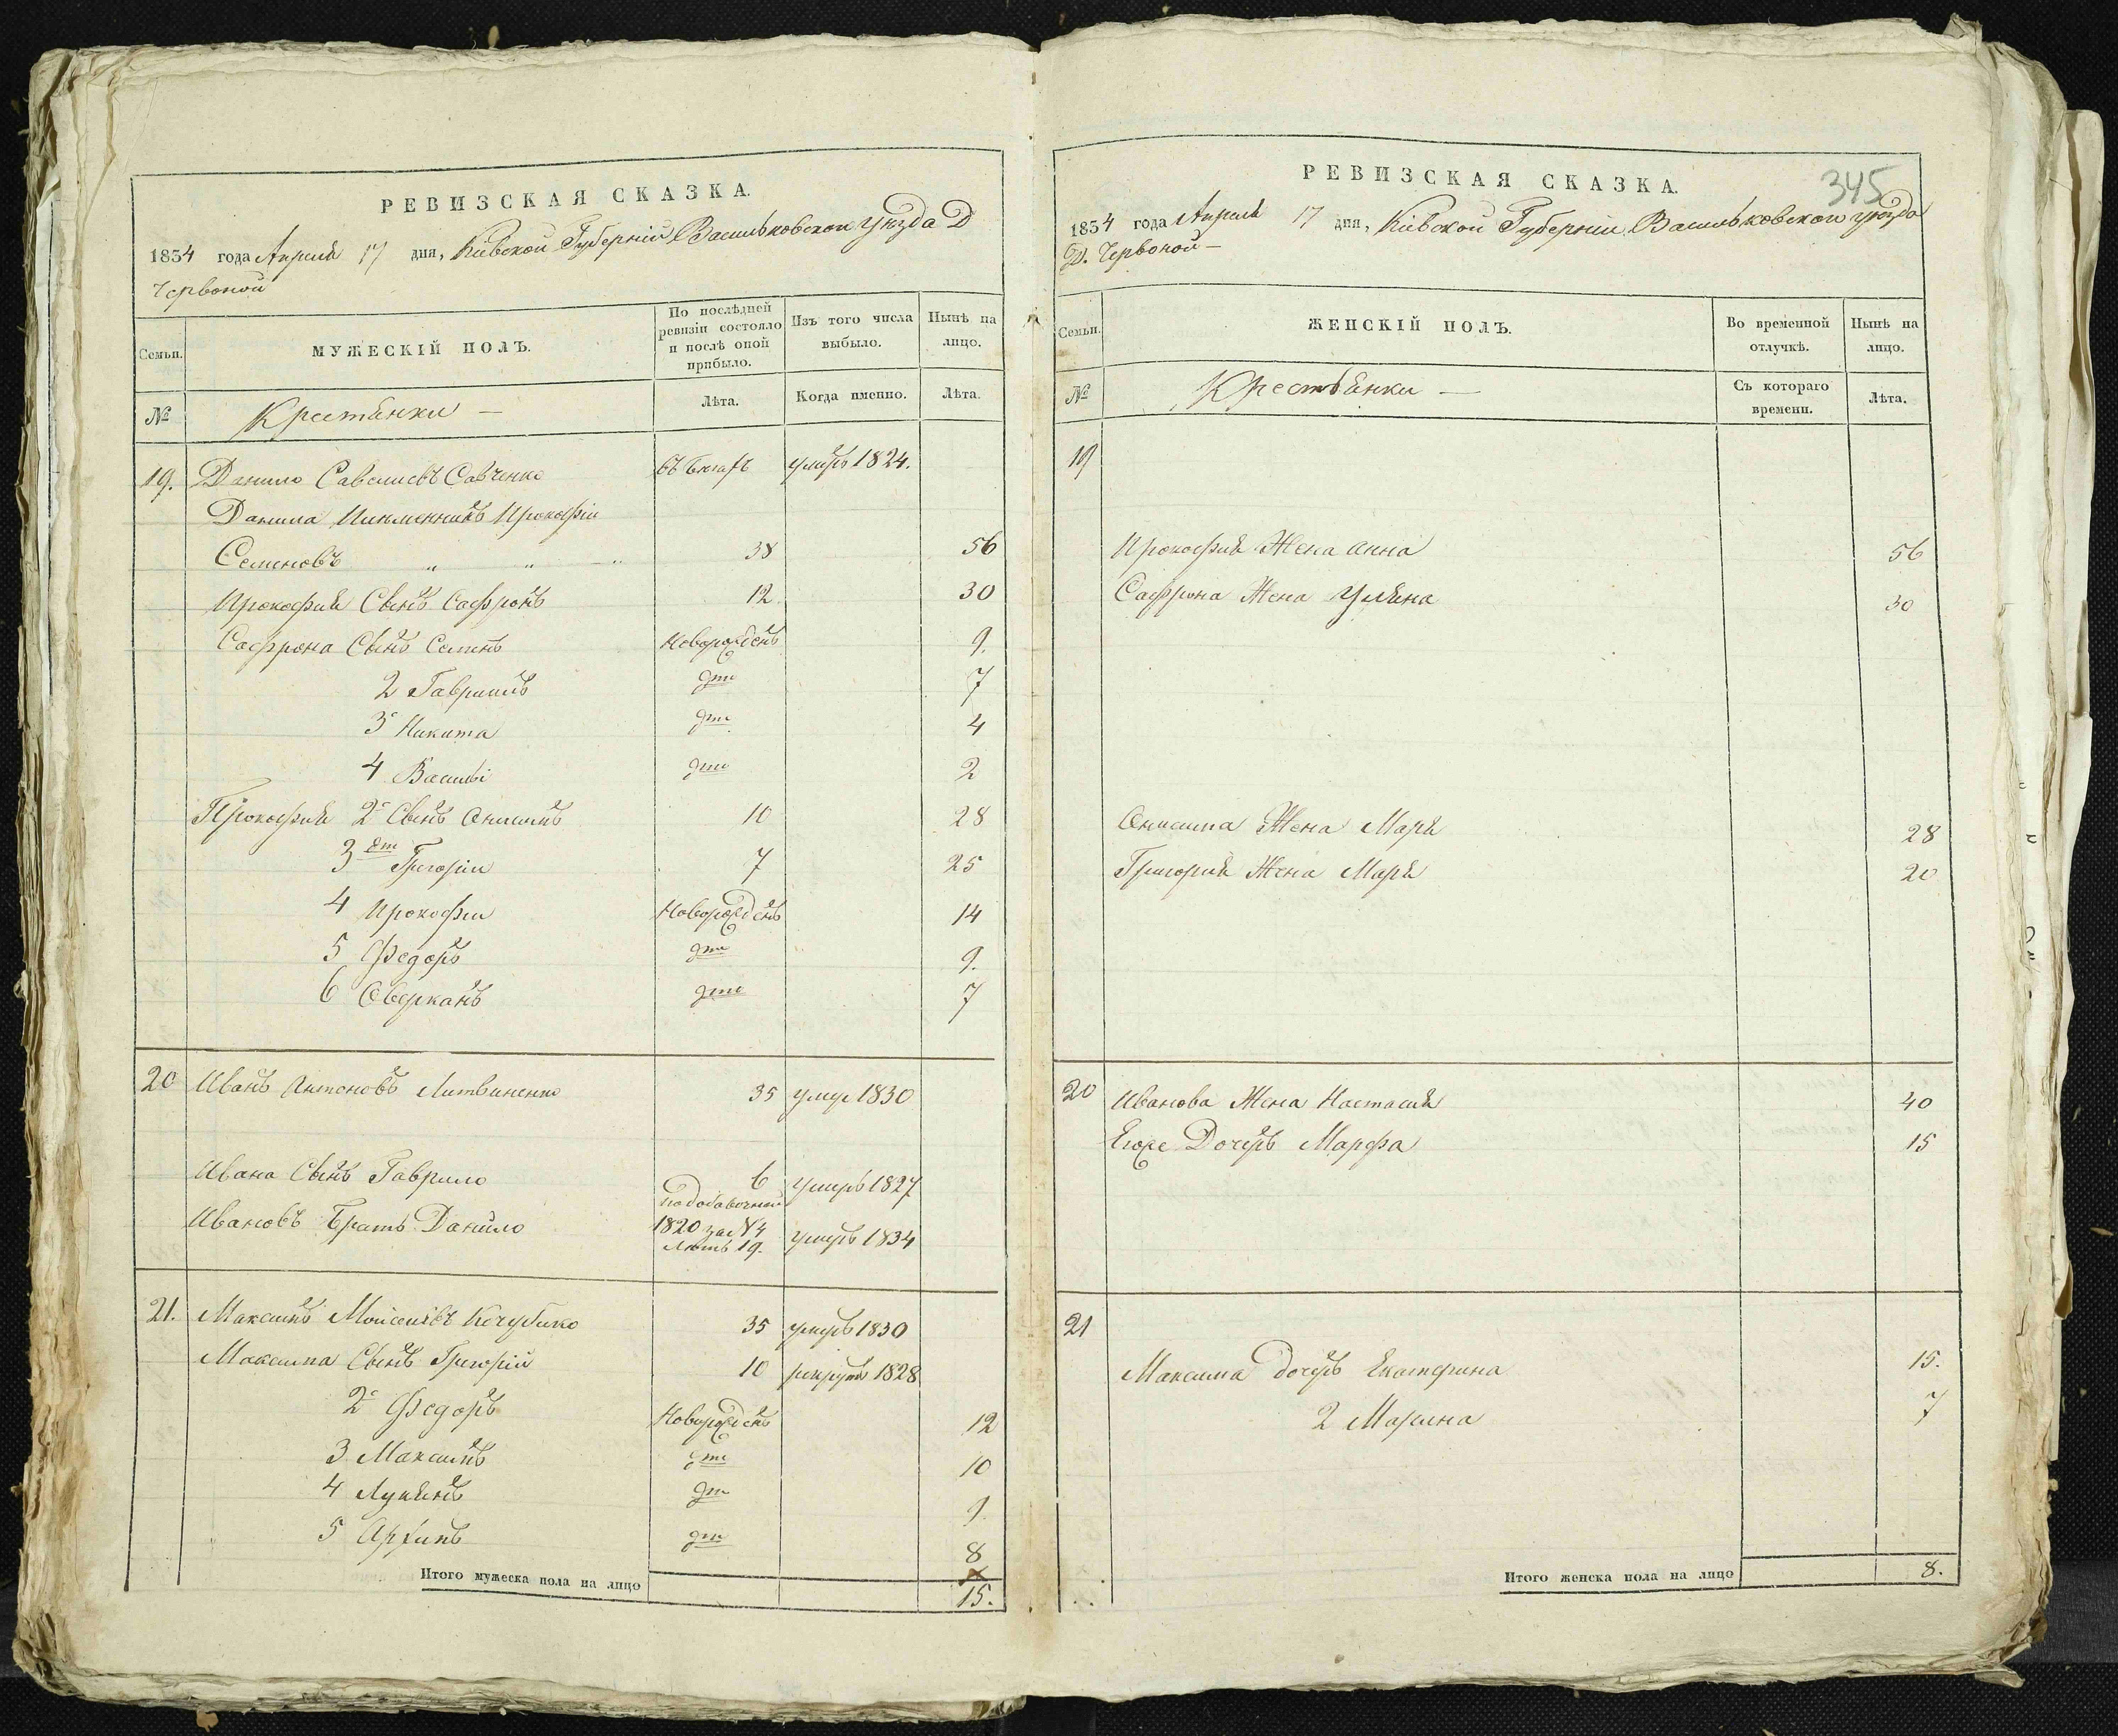 РЕВИЗСКАЯ СКАЗКА.
1834 года Апреля 17 дня, Кіевской Губерніи Васильковскои Уезда Д
Червоной
Семьи.
МУЖЕСКІЙ ПОЛЪ.
По послѣдней ревизіи состояло и послѣ оной прибыло.
Изъ того числа выбыло.
Нынѣ на лицо.
№
Крестьянки —
Лѣта.
Когда именно.
Лѣта.
19. Данило Савелиевъ Савченко умеръ 1824.
Данила Прокофіи
Семеновъ " " " 38 56
Прокофия Сынъ Сафронъ 12 30
Сафрона Сынъ Семенъ Новорожденъ 9.
2 Гаврыилъ дти 7
3 Никита дти 4
4 Василі дти 2
Прокофия 2й Сынъ Онисимъ 10 28
3 Григоріи 7 25
4 Прокофіи Новорожденъ 14
5 Федоръ дти 9.
6 дти 7
20 Иванъ Антоновъ Литвиненко 35 умер 1830
Ивана Сынъ Гаврило 6 умеръ 1827
Ивановъ братъ Данило
1820 за №4 умеръ 1834
летъ 19.
21. Максимъ Моисеивъ 35 умеръ 1830
Максима Сынъ Григорій 10 рекрутъ 1828
2й Федоръ Новорожденъ 12
3 Максимъ дти 10
4 Лукянъ дти 9.
5 дти 8
Итого мужеска пола на лицо 15.
345
РЕВИЗСКАЯ СКАЗКА.
1834 года Апреля 17 дня, Кіевской Губерніи Васильковскои уезда
Д. Червоной —
Семьи.
ЖЕНСКІЙ ПОЛЪ.
Во временной отлучкѣ.
Нынѣ на лицо.
№
Крестьянки —
Съ котораго времени.
Лѣта.
19
Прокофия Жена Анна 56
Сафрона Жена Уляна 30
Онисима Жена Маря 28
Григория Жена Маря 20
20 Иванова Жена Настасия 40
Егоже Дочеръ Марфа 15
21
Максима дочеръ Екатерина 15.
2 Марина 7
Итого женска пола на лицо 8.